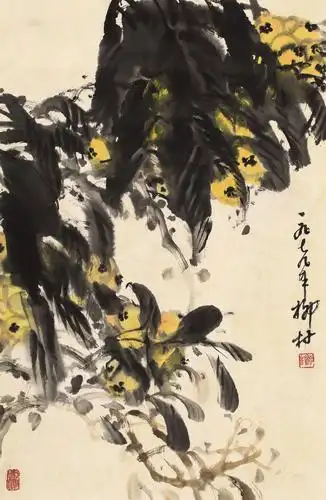 一九七九年柳村